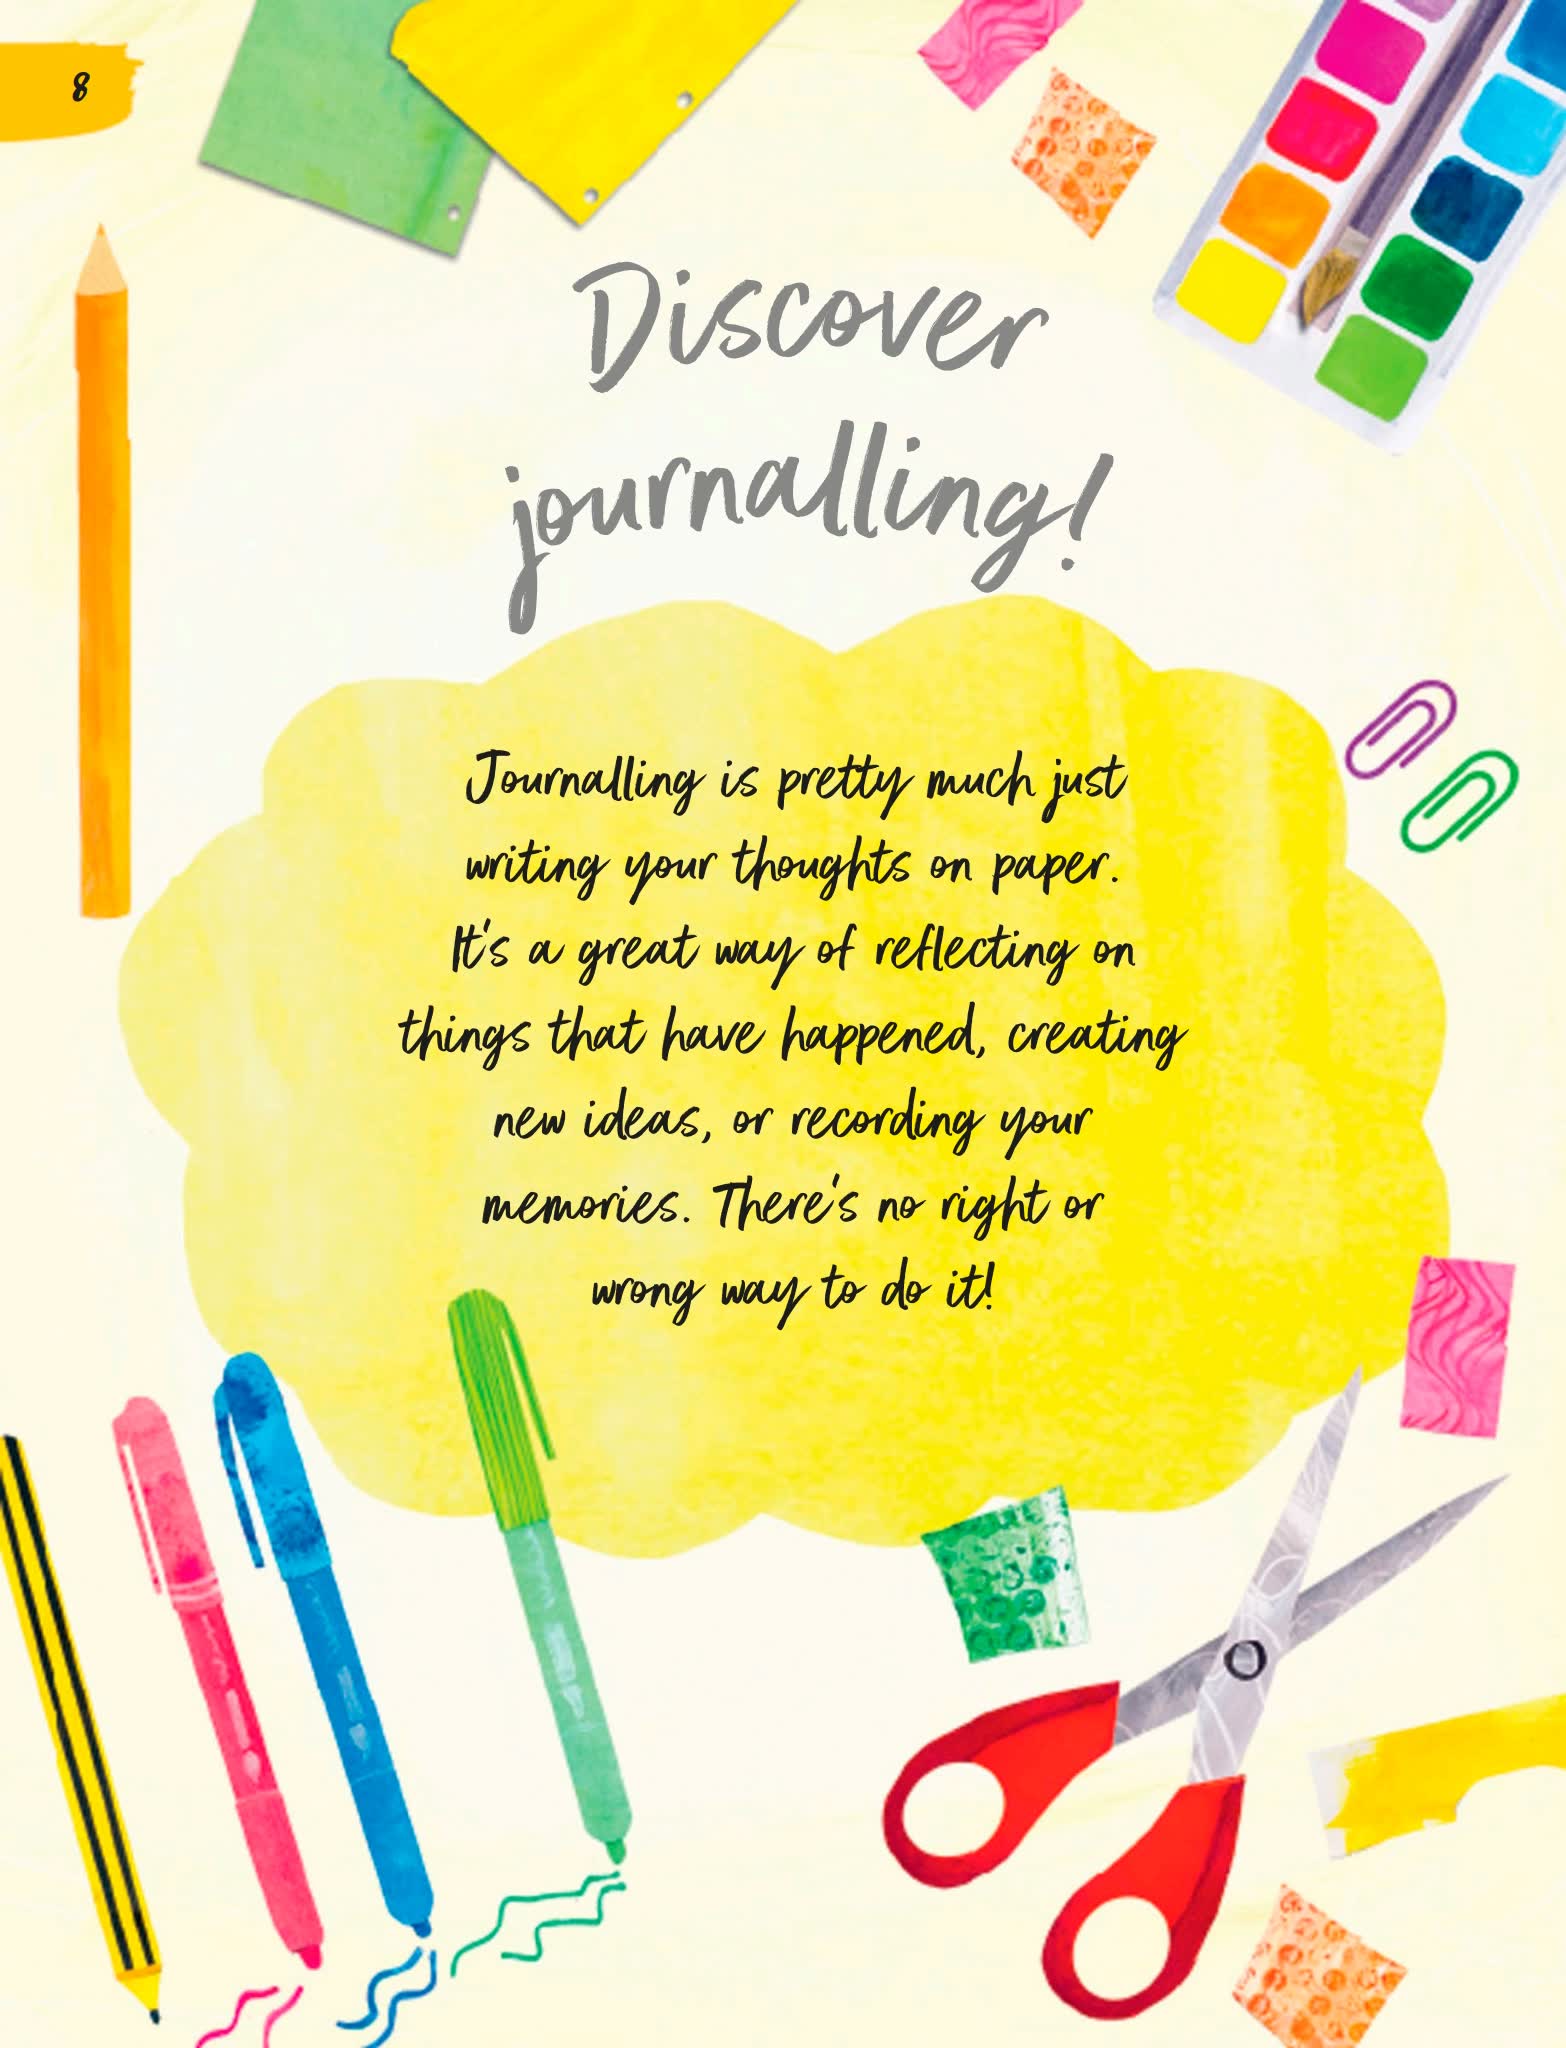 8
Discover
journalling!
Journalling is pretty much just
writing your thoughts on paper.
It's a great way of reflecting on
things that have happened, creating
new ideas, or recording your
memories. There's no right or
wrong way to do it!